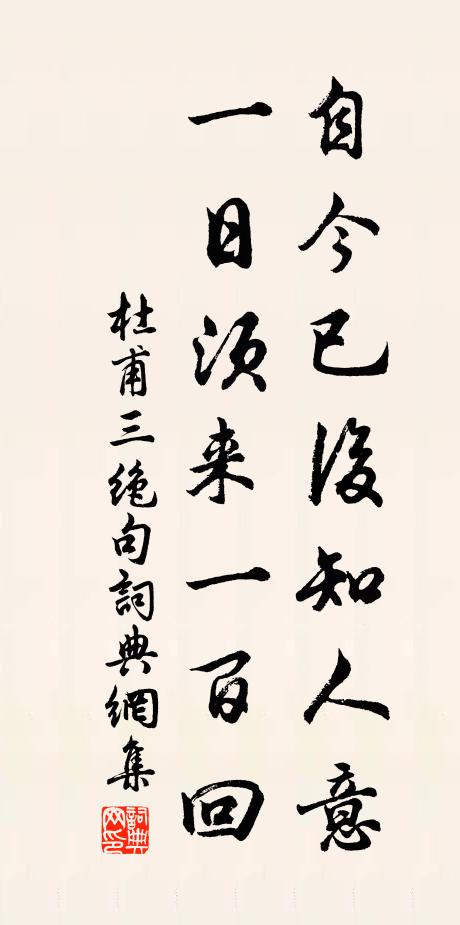 自今已後知人意
一日須来一百回
杜甫三绝句詞典網集
詞典网印